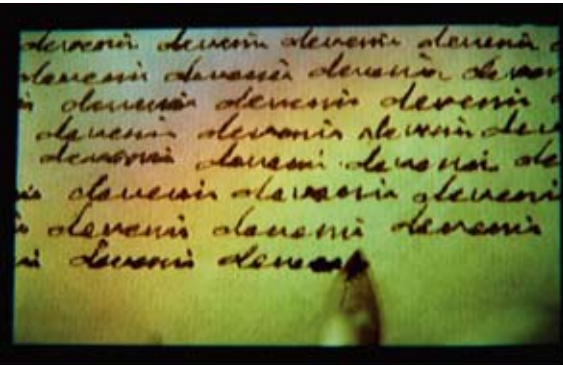 devenir devenir devenir devenir
devenir devenir devenir deven
devenir devenir devenir
devenir devenir devenir dev
devenir devenir devenir de
ir devenir devenir deveni
devenir devenir devenir
ir devenir deven